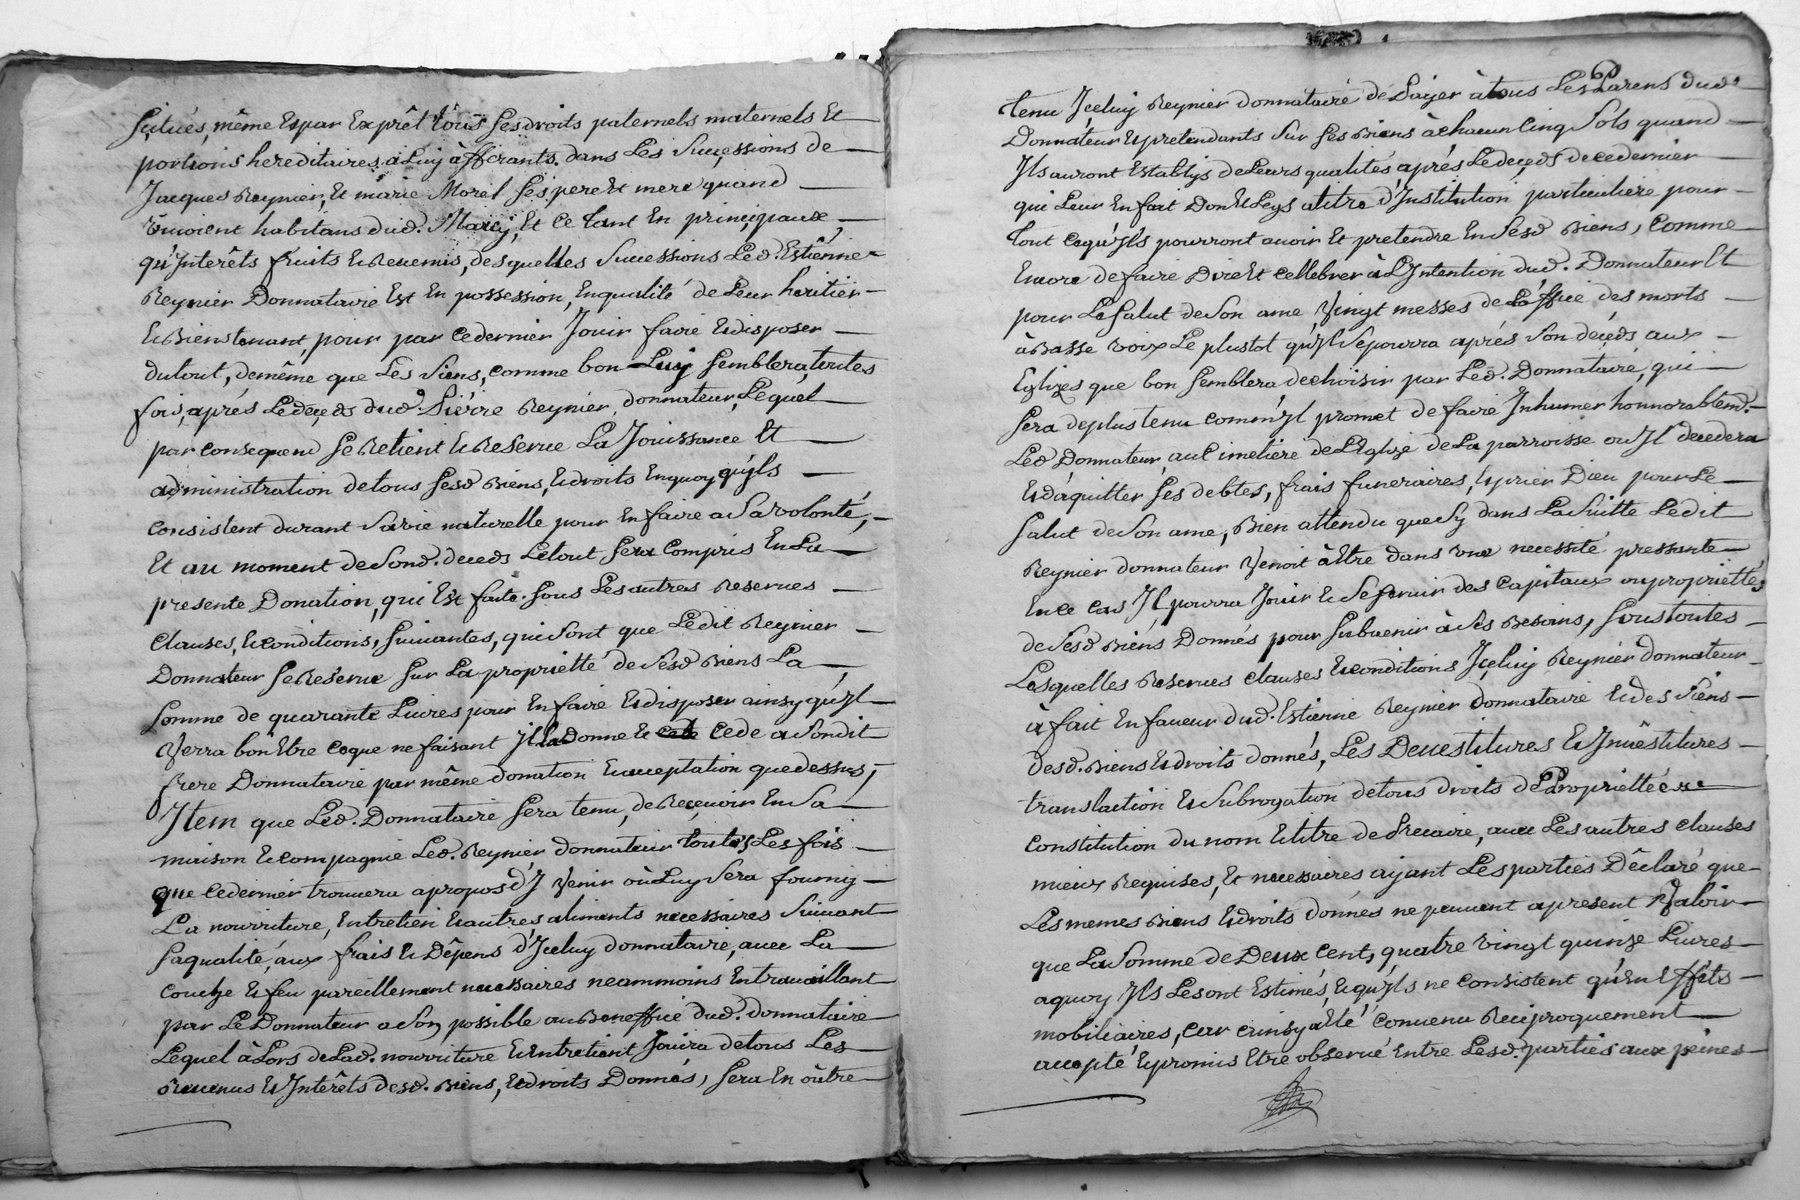 scitués, même Et par Exprêt tous ses droits paternels maternels Et
portions hereditaires à Luy àfferants dans Les successions de
Jacques Reynier, Et marie Morel ses pere Et mere quand
vivoient habitans dud. Marcy, Et ce tant En principaux,
qu'Interêts fruits Et Revenus, desquelles successions Led. Estienne
Reynier Donnataire Est En possession, En qualité de Leur heritier
Et Bienstenant, pour par ce dernier Jouir faire Et disposer
du tout, de même que Les siens, comme bon Luy semblera, toutes
fois, aprés Le deçeds dud. Pierre Reynier, donnateur, Lequel
par consequend se Retient Et Reserve La Jouissance Et
administration de tous sesd Biens, Et droits En quoy qu'jls
consistent durant sa vie naturelle pour En faire a sa volonté,
Et au moment de Sond. deceds Le tout sera compris En La
presente Donation, qui Est faite sous Les autres Reserves
clauses, Et conditions, suivantes, qui sont que Ledit Reynier
Donnateur se Réserve sur La proprietté de sesd Biens La
somme de quarante Livres pour En faire Et disposer ainsy qu'jl
Verra bon Etre ce que ne faisant jl La Donne Et cede a sondit
frere Donnataire par même donation Et acceptation que dessus;
Jtem que Led. Donnataire sera tenu, de Reçevoir En sa
maison Et compagnie Led. Reynier donnateur toutes Les fois
que ce dernier trouvera a propos d'J Venir où Luy sera fourny
La nourriture, Entretien Et autres aliments necessaires suivant
sa qualité, aux frais Et Dêpens d'Jceluy donnataire, avec La
couche Et feu pareillement necessaires neammoins En travaillant
par Le Donnateur a son possible au Beneffice dud. donnataire
Lequel à Lors de Lad. nourriture Et Entretient Jouira de tous Les
Revenus Et Jnterêts desd. Biens, Et droits Donnés, sera En oûtre
tenu Jçeluy Reynier donnataire de Payer à tous Les Parens dud.
Donnateur Et pretendants sur ses Biens à chacun Cinq Sols quand
Jls auront Establis de Leurs qualités, aprés Le deçeds de ce dernier
qui Leur En fait Don Et Legs a titre d'Jnstitution particuliere pour
tout ce qu'jls pourront avoir Et pretendre En sesd Biens, comme
Encore de faire Dire Et cellebrer à L'Jntention dud. Donnateur Et
pour Le Salut de Son ame Vingt messes de L'office des morts
à Basse voix Le plustot qu'jl se pourra aprés Son deçeds aux
Eglises que bon semblera de choisir par Led. Donnataire, qui
sera de plus tenu comm'jl promet de faire Jnhumer honnorablemt.
Led Donnateur, au Cimetiere de L'Eglize de La parroisse ou jl decedera
Et d'aquitter ses debtes, frais funeraires, Et prier Dieu pour Le
Salut de Son ame, Bien attendu que sy dans La suitte Ledit
Reynier donnateur Venoit à Etre dans une necessité pressante
En ce cas Jl pourra Jouir Et se servir des capitaux ou propriettés
de sesd Biens Donnés pour subvenir à ses Besoins, sous toutes
Lesquelles Reserves clauses Et conditions Jçeluy Reynier donnateur
à fait En faveur dud. Estienne Reynier donnataire Et des siens
desd. Biens Et droits donnés, Les Devestitures Et Jnvêstitures
translaction Et Subrogation de tous droits de Proprietté
constitution du nom Et titre de precaire, avec Les autres clauses
mieux Requises, Et necessaires ajant Les parties Dêclaré que
Les memes Biens Et droits donnés ne peuvent a present Valoir
que La Somme de Deux Cent, quatre vingt quinze Livres
a quoy Jls Les ont Estimés, Et qu'jls ne consistent qu'En Effets
mobiliaires, car ainsy a Eté Convenu Reciproquement
accepté Et promis Etre observé Entre Lesd. parties aux peines